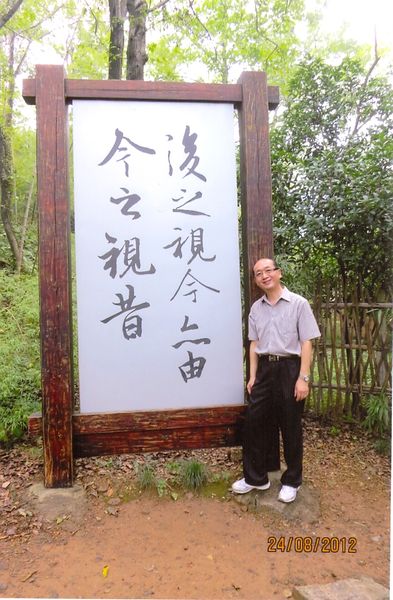 後之視今亦由
今之視昔
24/08/2012